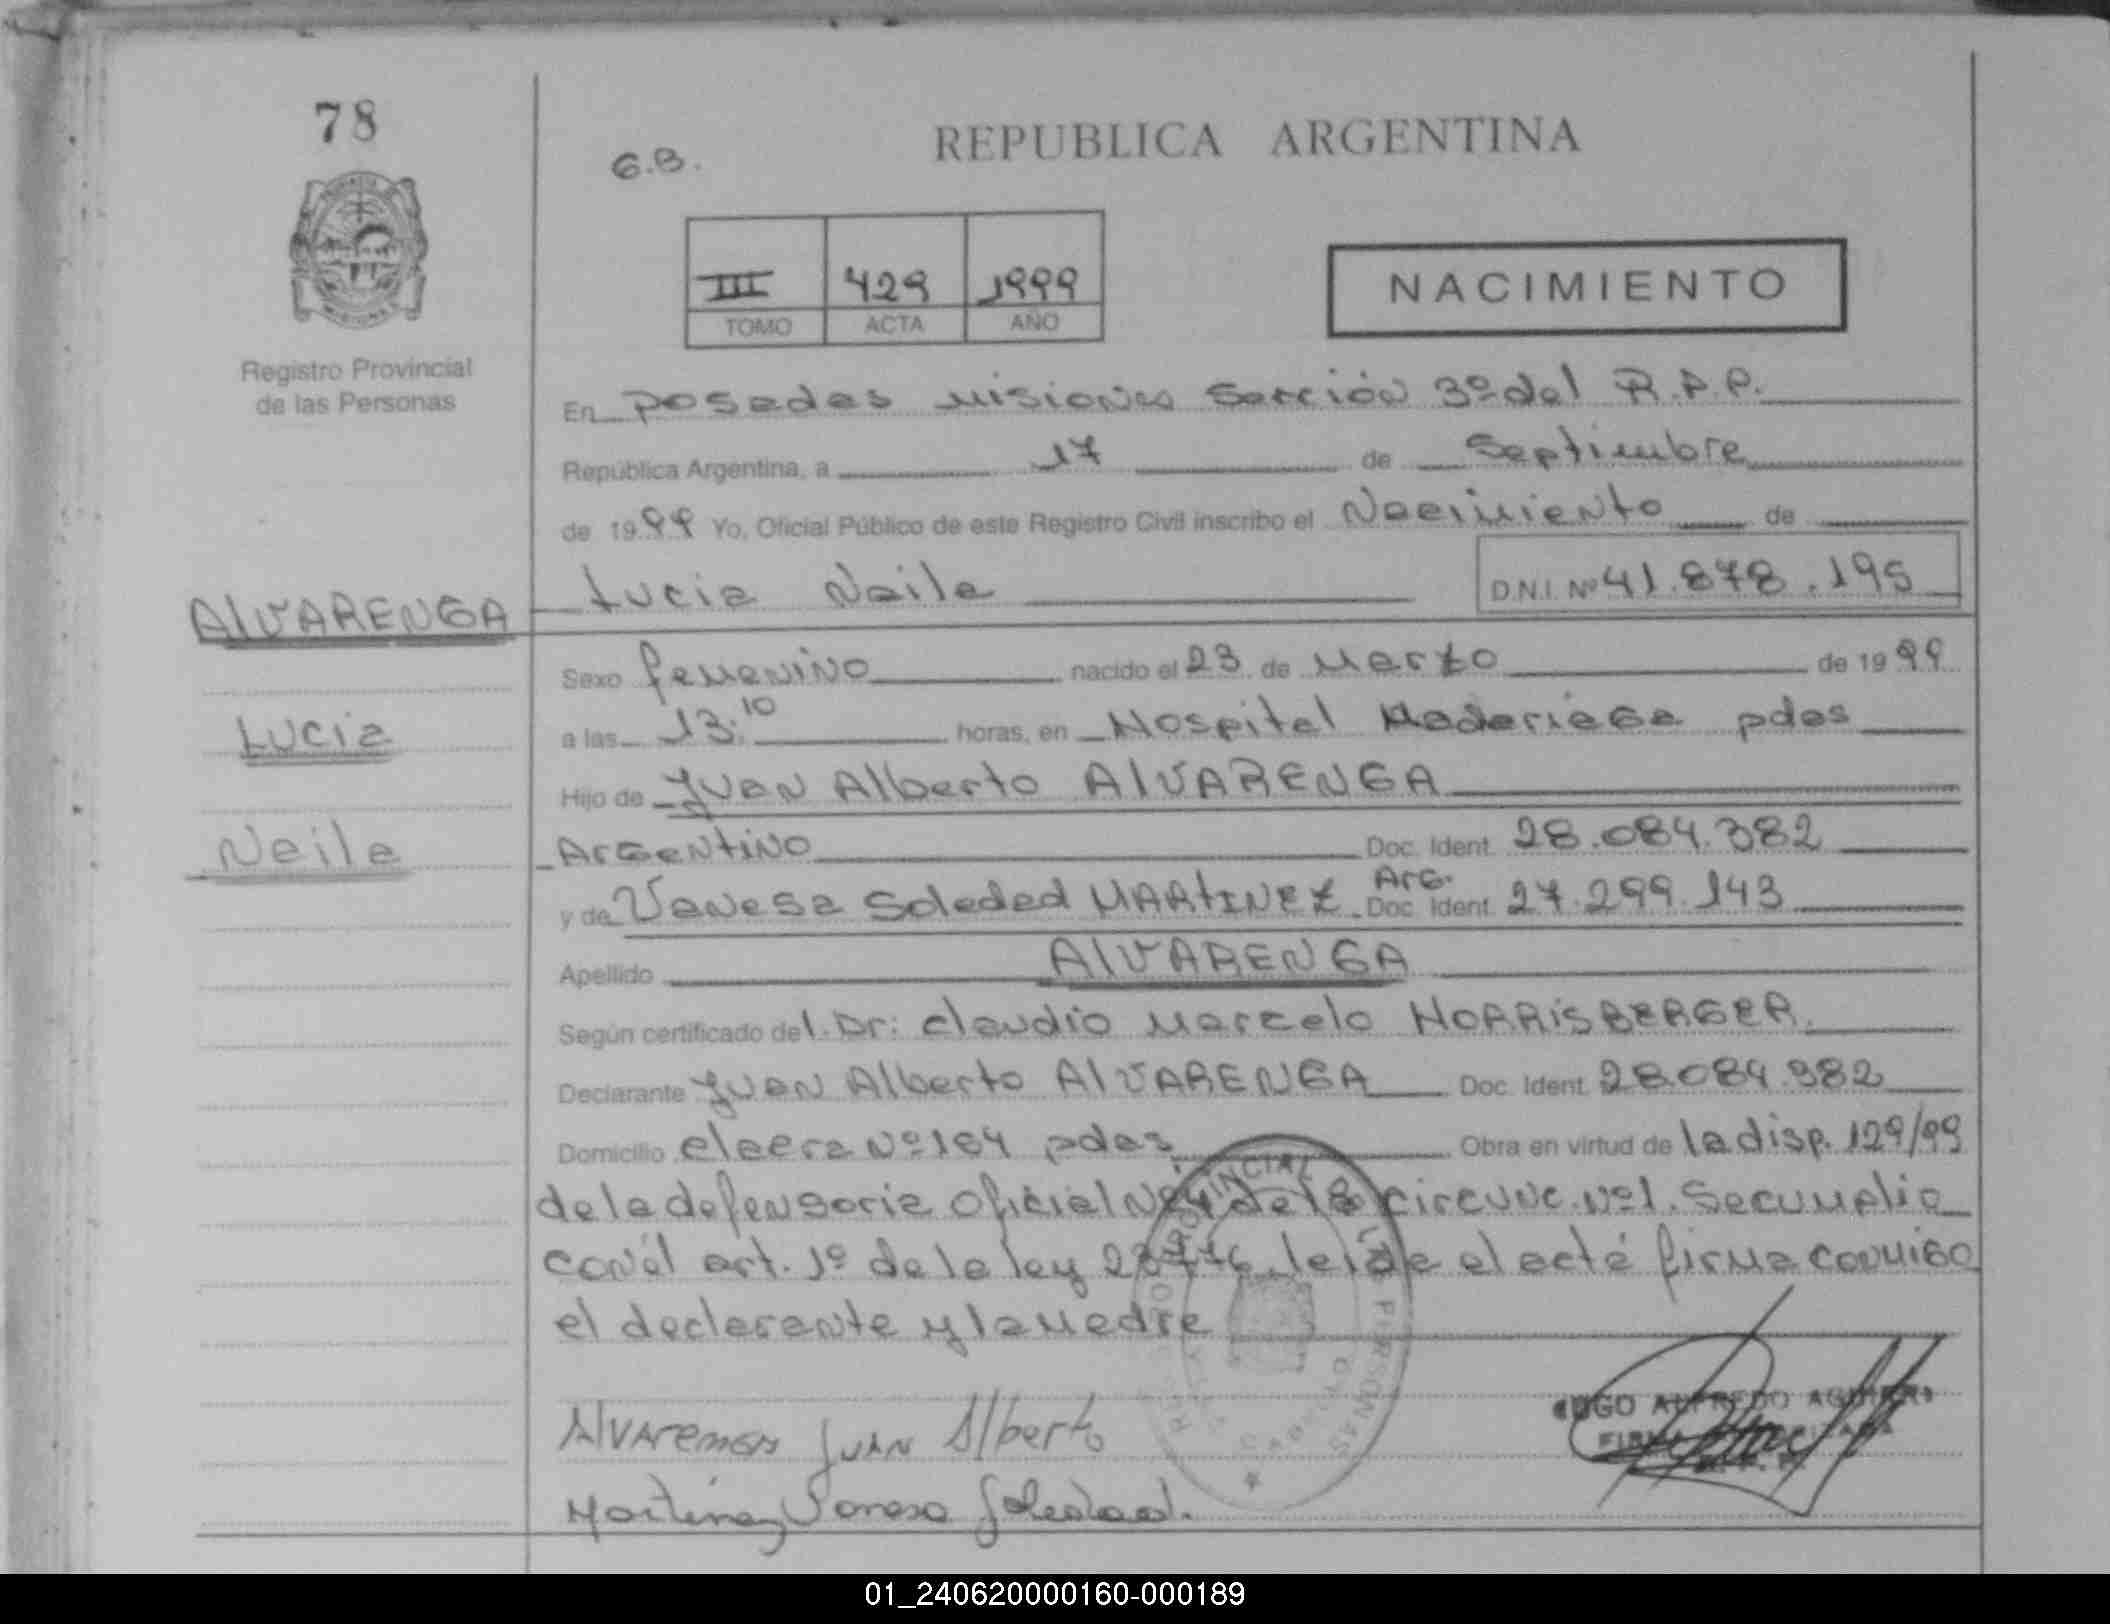 78
G.B.
REPUBLICA ARGENTINA
III 429 1999
TOMO ACTA AÑO
NACIMIENTO
Registro Provincial
de las Personas
En Posadas Misiones Sección 3º del R.P.P.
República Argentina, a 17 de Septiembre
de 1999 Yo, Oficial Público de este Registro Civil inscribo el Nacimiento de
ALVARENGA Lucia Naila D.N.I. Nº 41.878.195
Sexo femenino nacido el 23 de Marzo de 1999
Lucia
a las 13:10 horas, en Hospital Madariaga pdas
Hijo de Juan Alberto ALVARENGA
Naila
Argentino Doc. Ident. 28.084.382
y de Vanesa Soledad MARTINEZ. Arg. Doc. Ident. 27.299.143
Apellido ALVARENGA
Según certificado del Dr: Claudio Marcelo HORRISBERGER.
Declarante Juan Alberto ALVARENGA Doc. Ident. 28.084.382
Domicilio Nº 164 pdas Obra en virtud de la disp. 129/99
de la defensoria Oficial Nº4 de la circunc. Nº1. Se cumplio
con el art. 1º de la ley leida el acta firma conmigo
el declarante y la madre
Alvarenga Juan Alberto
HUGO ALFREDO
Martinez Vanesa Soledad.
01_240620000160-000189